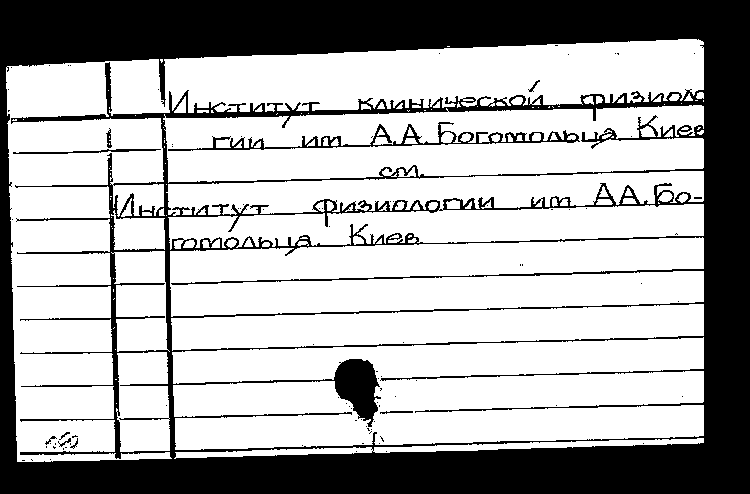 Институт клинической физиоло
гии им. А.А. Богомольца Киев
см.
Институт физиологии им. А.А. Бо-
гомольца. Киев